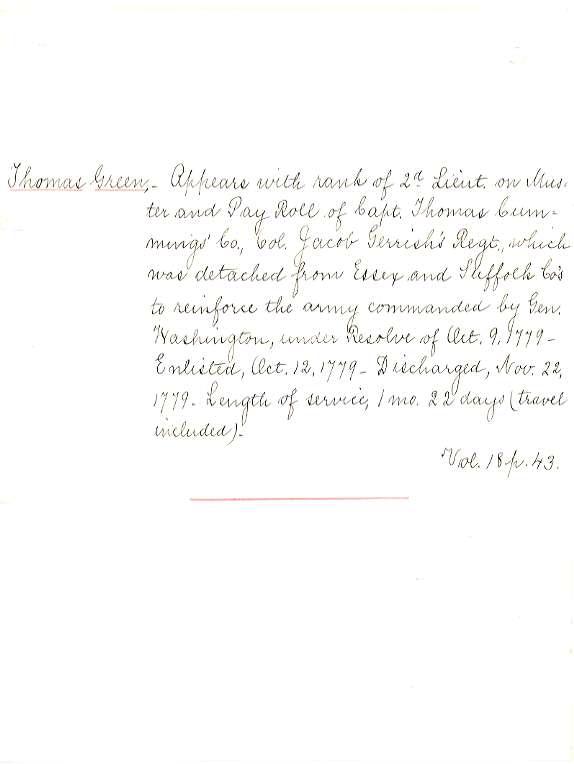 Thomas Green,- Appears with rank of 2d Lieut. on Mus-
ter and Pay Roll of Capt. Thomas Cum-
mings' Co., Col. Jacob Gerrish's Regt., which
was detached from Essex and Suffolk Co's
to reinforce the army commanded by Gen.
Washington, under Resolve of Oct. 9, 1779-
Enlisted, Oct. 12, 1779- Discharged, Nov. 22,
1779- Length of service, 1 mo. 22 days (travel
included)-
Vol. 18 p. 43.